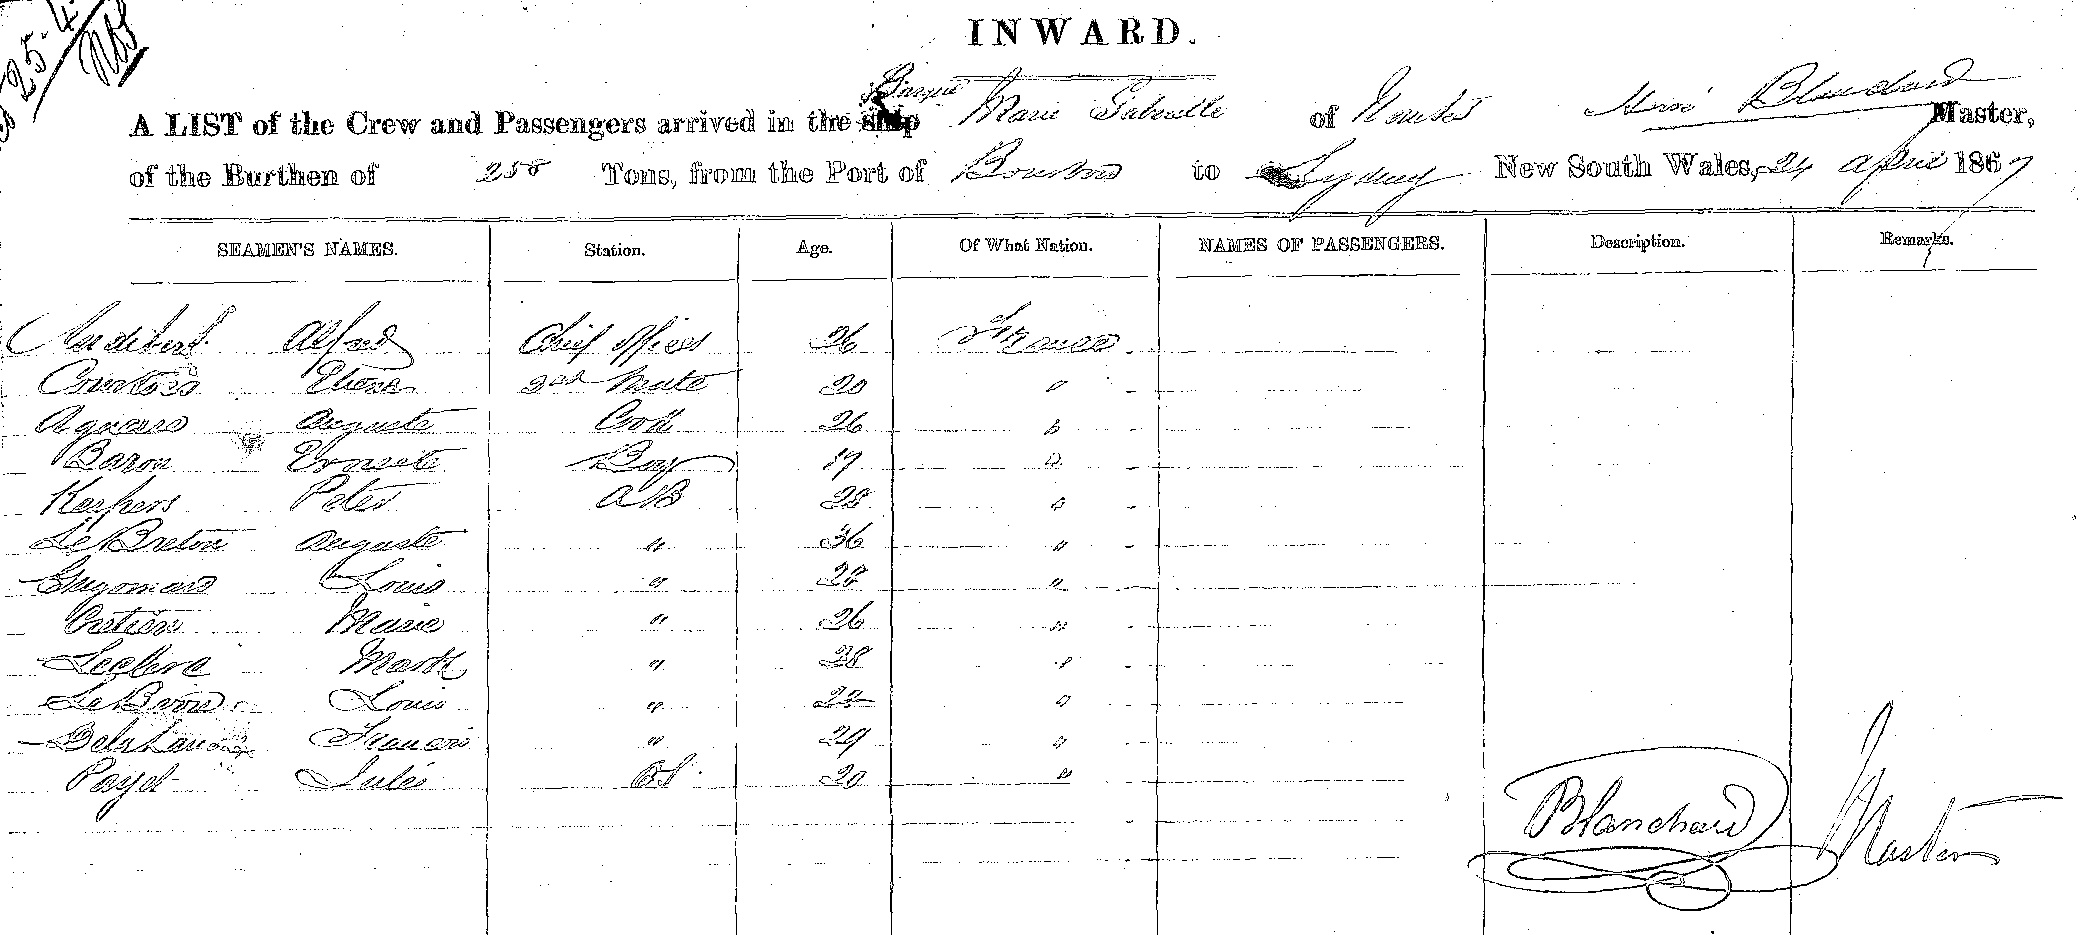 25.4
INWARD.
A LIST of the Crew and Passengers arrived in the ship Barque Marie Gabrielle of Nantes Blanchard Master,
of the Burthen of 258 Tons, from the Port of Bourbon to Sydney New South Wales, 24 April 1867
SEAMEN'S NAMES. Station. Age. Of What Nation. NAMES OF PASSENGERS. Description. Remarks.
Audibert Alfred Chief Officer 26 France
Courtois 2nd Mate 20 "
Auguste Cook 26 "
Baron Boy 19 "
Peter AB 28 "
Le Breton Auguste " 36 "
Guyomard Louis " 28 "
Marie " 26 "
Leclerc Mark " 28 "
Le Louis " "
Francois " 29 "
Payet Jules OS 20 "
Blanchard Master